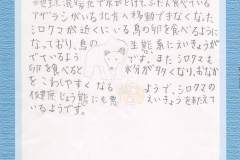 地球温だん化で氷がとけ、ふだん食べている
アザラシがいる北方へ移動できなくなった
シロクマが近くにいる鳥の卵を食べるように
なっており、鳥の生態系にえいきょうが
でているようです。また、シロクマも
卵を食べると水分が多くなり、おなか
をこわしやすくなる
健康じょう態にも悪ようで、シロクマの
えいきょうをあたえて
いるようです。